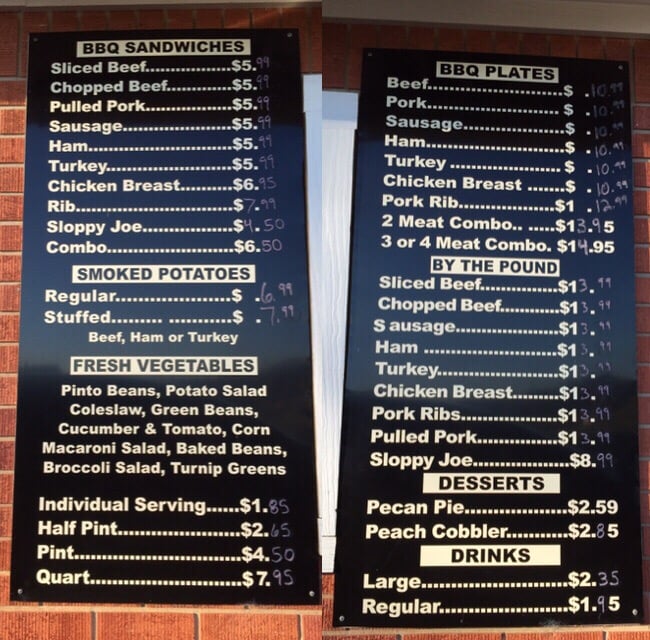 BBQ SANDWICHES
Sliced Beef..................$5.99
Chopped Beef.............$5.99
Pulled Pork.................$5.99
Sausage......................$5.99
Ham............................$5.99
Turkey.........................$5.99
Chicken Breast..........$6.95
Rib..............................$7.99
Sloppy Joe.................$4.50
Combo.......................$6.50
SMOKED POTATOES
Regular.......................$ .6.99
Stuffed......... ............$ .7.99
Beef, Ham or Turkey
FRESH VEGETABLES
Pinto Beans, Potato Salad
Coleslaw, Green Beans,
Cucumber & Tomato, Corn
Macaroni Salad, Baked Beans,
Broccoli Salad, Turnip Greens
Individual Serving......$1.85
Half Pint.....................$2.65
Pint.............................$4.50
Quart...........................$7.95
BBQ PLATES
Beef............................$ .10.99
Pork............................$ .10.99
Sausage.....................$ .10.99
Ham............................$ .10.99
Turkey ......................$ .10.99
Chicken Breast ......$ .10.99
Pork Rib....................$1 .12.99
2 Meat Combo.. .....$13.95
3 or 4 Meat Combo. $14.95
BY THE POUND
Sliced Beef................$13.99
Chopped Beef...........$13.99
S ausage....................$13.99
Ham ..........................$13.99
Turkey........................$13.99
Chicken Breast.........$13.99
Pork Ribs...................$13.99
Pulled Pork................$13.99
Sloppy Joe.................$8.99
DESSERTS
Pecan Pie...................$2.59
Peach Cobbler...........$2.85
DRINKS
Large..........................$2.35
Regular.......................$1.95